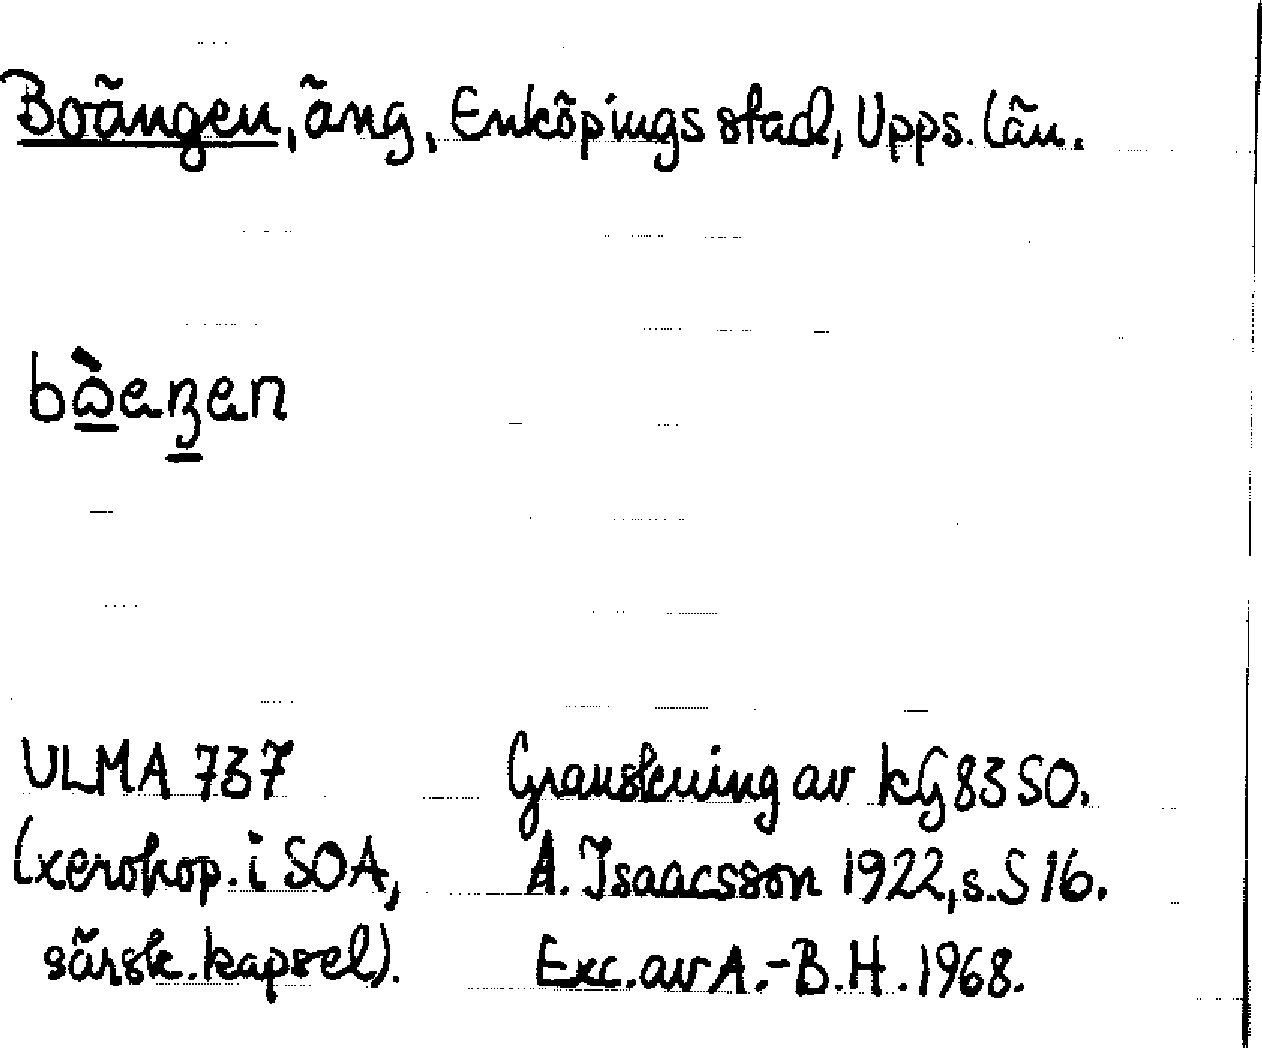 Boängen, äng, Enköpings stad, Upps. län.
bò̱eŋen
ULMA 737 Granskning av kG 83 SO.
(xerokop. i SOA, A. Isaacsson 1922, s. S 16.
särsk. kapsel). Exc. av A.-B. H. 1968.